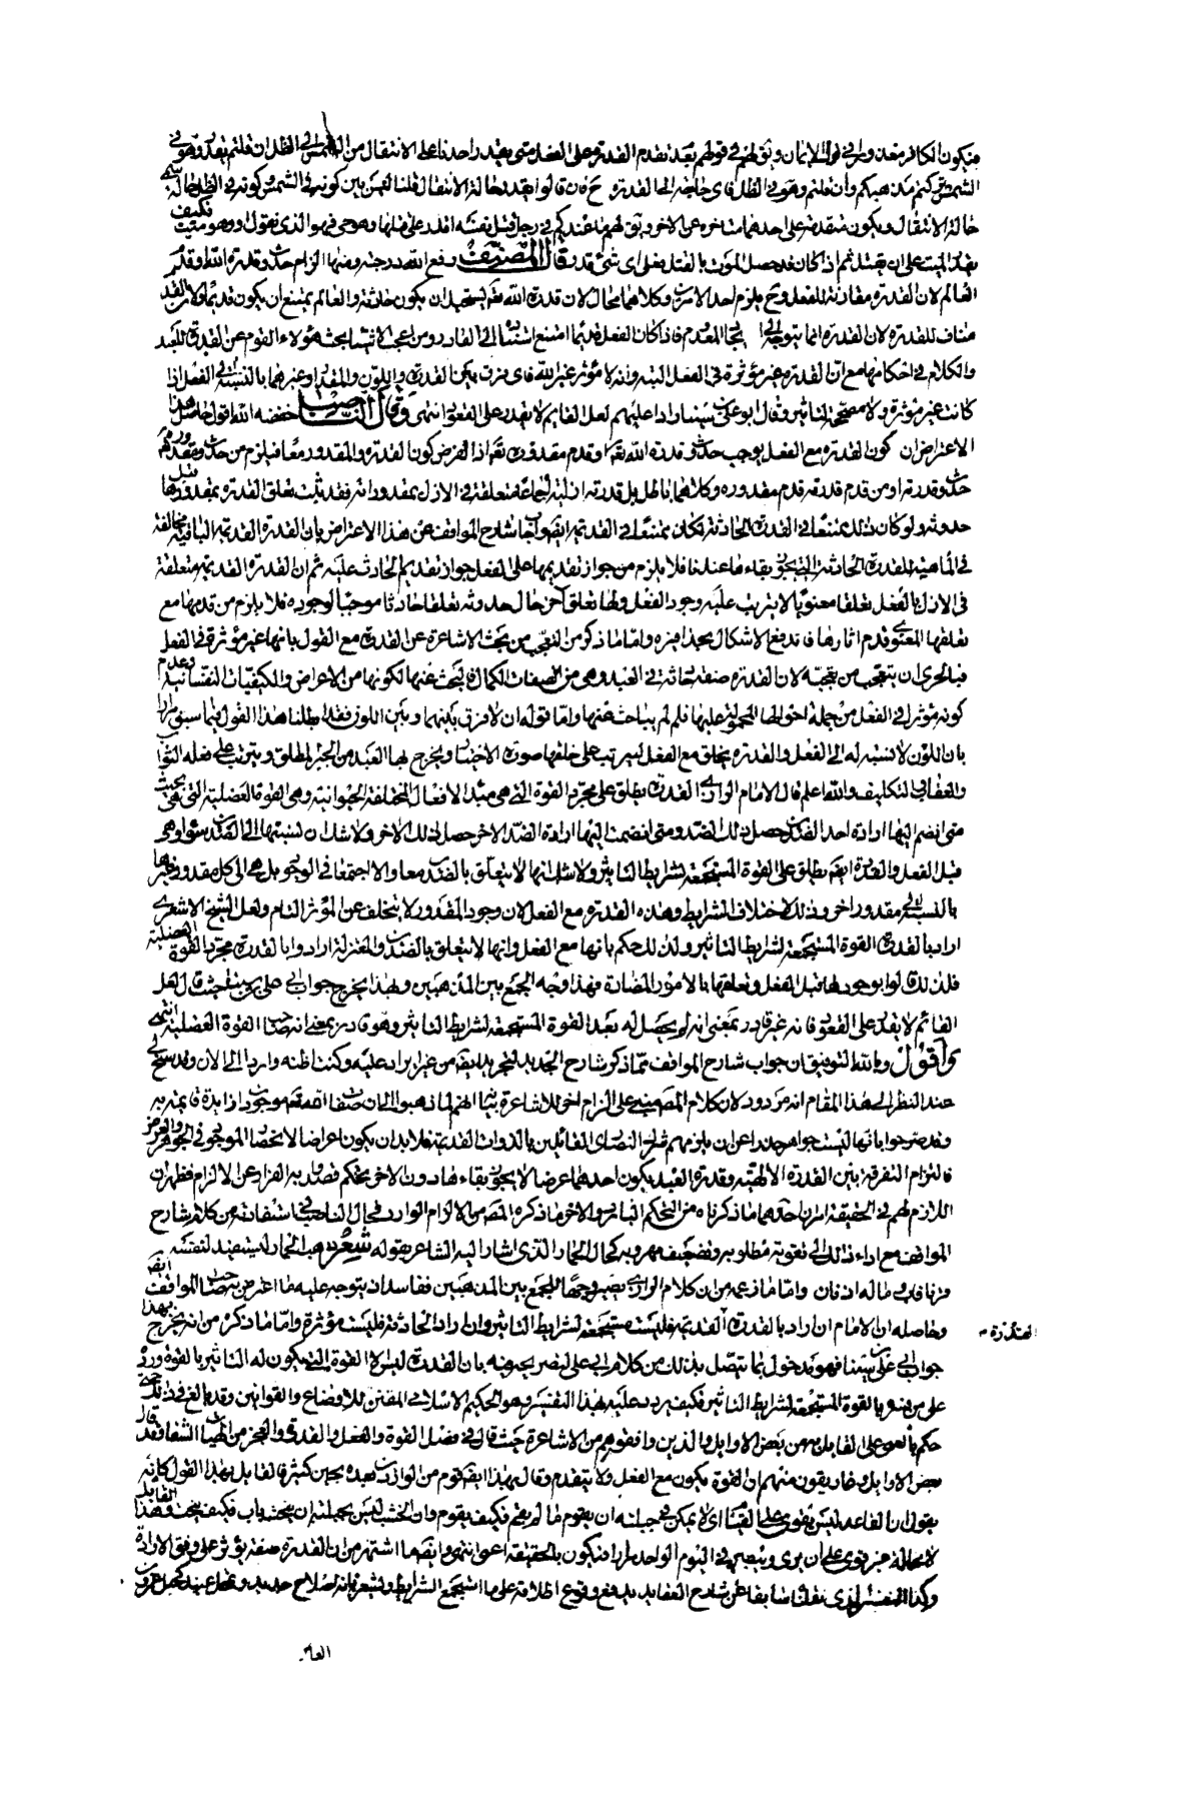 فيكون الكافر مقدورا في قولك الايمان ويق لهم في قولهم بعد تقدم القدرة على الفعل متى يقدر احدنا على الانتقال من الشمس الى الظل ان قلتم يقدر وهو في
الشمس تركتم مذهبكم وان قلتم وهو في الظل فاى حاجة الى القدرة ح فان قالوا يقدر حالة الانتقال قلنا ليس بين كونه في الشمس وكونه في الظل حالة تسمى
حالة الانتقال ويكون متقدمة على احدهما متاخرة عن الاخر ويق لهم ما عندكم في رجل قتل نفسه اقدر على قتلها وهو حى فهو الذى نقول او وهو ميت فكيف
يقدر الميت على ان يقتل ثم اذا كان قد حصل الموت بالقتل فعلى اى شئ قدر قال المصنف رفع الله درجته ومنها الزام حدوث قدرة الله او قدم
العالم لان القدرة مقارنة للفعل وح يلزم احد الامرين وكلاهما محال لان قدرة الله تعه يستحيل ان يكون حادثة والعالم يمتنع ان يكون قديما ولان القدم
مناف للقدرة لان القدرة انما يتوجه الى ايجاد المعدوم فاذا كان الفعل قديما امتنع استناده الى القادر ومن اعجب الاشياء بحث هؤلاء القوم عن القدرة للعبد
والكلام في احكامها مع ان القدرة غير مؤثرة في الفعل البتة وانه لا مؤثر غير الله فاى فرق بين القدرة واللون والقد او غيرهما بالنسبة الى الفعل اذا
كانت غير مؤثرة ولا مصححة للتاثير وقال ابو على بن سينا رادا عليهم لعل القايم لا يقدر على القعود انتهى وقال الناصب خفضه الله اقول حاصل هذا
الاعتراض ان كون القدرة مع الفعل يوجب حدوث قدرة الله تعه او قدم مقدوره تعه اذ الفرض كون القدرة والمقدور معا فيلزم من حدوث مقدوره تعه
حدوث قدرته او من قدم قدرته قدم مقدوره وكلاهما باطل بل قدرته ازلية اجماعا متعلقة في الازل بمقدوراته فقد ثبت تعلق القدرة بمقدورها قبل
حدوثه ولو كان ذلك ممتنعا في القدرة الحادثة لكان ممتنعا في القديمة ايضا واجاب شارح المواقف عن هذا الاعتراض بان القدرة القديمة الباقية مخالفة
في الماهية للقدرة الحادثة التي لا يجوز بقاءها عندنا فلا يلزم من جواز تقديمها على الفعل جواز تقديم الحادثة عليه ثم ان القدرة القديمة متعلقة
في الازل بالفعل تعلقا معنويا لا يترتب عليه وجود الفعل ولها تعلق اخر حال حدوثه تعلقا حادثا موجبا لوجوده فلا يلزم من قدمها مع
تعلقها المعنوى قدم اثارها فاندفع الاشكال بحذافيره واما ما ذكر من التعجب من بحث الاشاعرة عن القدرة مع القول بانها غير مؤثرة في الفعل
فبالحرى ان يتعجب من تعجبه لان القدرة صفة حادثة في العبد وهى من صفات الكمال فالبحث عنها لكونها من الاعراض والكيفيات النفسانية وعدم
كونه مؤثرا في الفعل من جملة احوالها المحمولة عليها فلم لم يباحث عنها واما قوله ان لا فرق بينهما وبين اللون فقد ابطلنا هذا القول فيما سبق مرارا
بان اللون لا نسبة له الى الفعل والقدرة يخلق مع الفعل ليترتب على خلقها صورة الاختيار ويخرج بها العبد من الجبر المطلق ويترتب على فعله الثواب
والعقاب والتكليف والله اعلم قال الامام الرازى القدرة يطلق على مجرد القوة التي هى مبدء الافعال المختلفة الحيوانية وهى القوة العضلية التي هى بحيث
متى انضم اليها ارادة احد الضدين حصل ذلك الضد ومتى انضمت اليها ارادة الضد الاخر حصل ذلك الاخر ولا شك ان نسبتها الى الضدين سواء وهى
قبل الفعل والقدرة ايضا يطلق على القوة المستجمعة لشرايط التاثير ولا شك انها لا يتعلق بالضدين معا والا اجتمعا في الوجود بل هى الى كل مقدور غيرها
بالنسبة الى مقدور اخر وذلك لاختلاف الشرايط وهذه القدرة مع الفعل لان وجود المقدور لا يتخلف عن المؤثر التام ولعل الشيخ الاشعرى
اراد بالقدرة القوة المستجمعة لشرايط التاثير ولذلك حكم بانها مع الفعل وانها لا يتعلق بالضدين والمعتزلة ارادوا بالقدرة مجرد القوة العضلية
فلذلك قالوا بوجودها قبل الفعل وتعلقها بالامور المتضادة فهذا وجه الجمع بين المذهبين وبهذا يخرج جواب ابى على بن سينا حيث قال لعل
القائم لا يقدر على القعود فانه غير قادر بمعنى انه لم يحصل له بعد القوة المستجمعة لشرايط التاثير وهو قادر بمعنى انه صاحب القوة العضلية انتهى
واقول وبالله التوفيق ان جواب شارح المواقف مما ذكر شارح الجديد للتجريد ايضا من غير ايراد عليه وكنت اظنه واردا الى الان وقد سنح لى
عند النظر الى هذا المقام انه مردود لان كلام المصنف مبنى على الزام اخر للاشاعرة بيانه انهم لما ذهبوا الى ان صفات الله تعه موجودات زايدة قائمة به
وقد صرحوا بانها ليست جواهر حذرا عن ان يلزمهم شرك النصارى القائلين بالذوات القديمة فلا بد ان يكون اعراضا لانحصار الموجود في الجوهر والعرض
فالتزام التفرقة بين القدرة الالهية وقدرة العبد بكون احدهما عرضا لا يجوز بقاءها دون الاخر تحكم قصدوا به الفرار عن الالزام فظهر ان
اللازم لهم في الحقيقة امران احدهما ما ذكرناه من التحكم البارد والاخر ما ذكره المصنف من الالزام الوارد في حال الناصب في استفادته من كلام شارح
المواقف مع اداء ذلك الى تقوية مطلوبه وتضعيف مهروبه كحال الحمار الذى اشار اليه الشاعر بقوله شعر ذهب الحمار ليستفيد لنفسه
قرنا فاب وما له اذنان واما ما زعمه من ان كلام الرازى يصير وجها للجمع بين المذهبين ففاسد انه يتوجه عليه ما اعترض صاحب المواقف ايضا
وحاصله ان الامام ان اراد بالقدرة القديمة فليست مستجمعة لشرايط التاثير وان اراد الحادثة فليست مؤثرة واما ما ذكر من انه يخرج بهذا
جواب ابى على بن سينا فهو مدخول بما يتصل بذلك من كلام ابى على لتصريحه بان القدرة ليس الا القوة التي يكون له التاثير بالقوة ورده
على من فسر بالقوة المستجمعة لشرايط التاثير فكيف يرد عليه بهذا التفسير وهو الحكيم الاسلامى المقنن للاوضاع والقوانين وقد بالغ في ذلك حتى
حكم بالعمى على القايل به من بعض الاوايل والذين وافقوهم من الاشاعرة حيث قال في فصل القوة والفعل والقدرة والعجز من الهيات الشفا وقد قال
بعض الاوايل وغاريقون منهم ان القوة يكون مع الفعل ولا يتقدم وقال بهذا ايضا قوم من الواردين بعده بحين كثير فالقايل بهذا القول كانه
يقول ان القاعد ليس يقوى على القيام اى لا يمكن في جبلته ان يقوم ما لم يقم فكيف يقوم وان الخشب ليس بجبلته ان ينحت باب فكيف ينحت وهذا القايل
لا محالة غير قوى على ان يرى ويبصر في اليوم الواحد مرارا فيكون بالحقيقة اعمى انتهى وايضا ما اشتهر من ان القدرة صفة يؤثر على وفق الارادة
وكذا التفسير الذى نقلنا سابقا عن شارح العقايد يدفع وقوع اطلاقه على ما استجمع الشرايط ويشعر بانه اصلاح جديد
القدرة
العلا